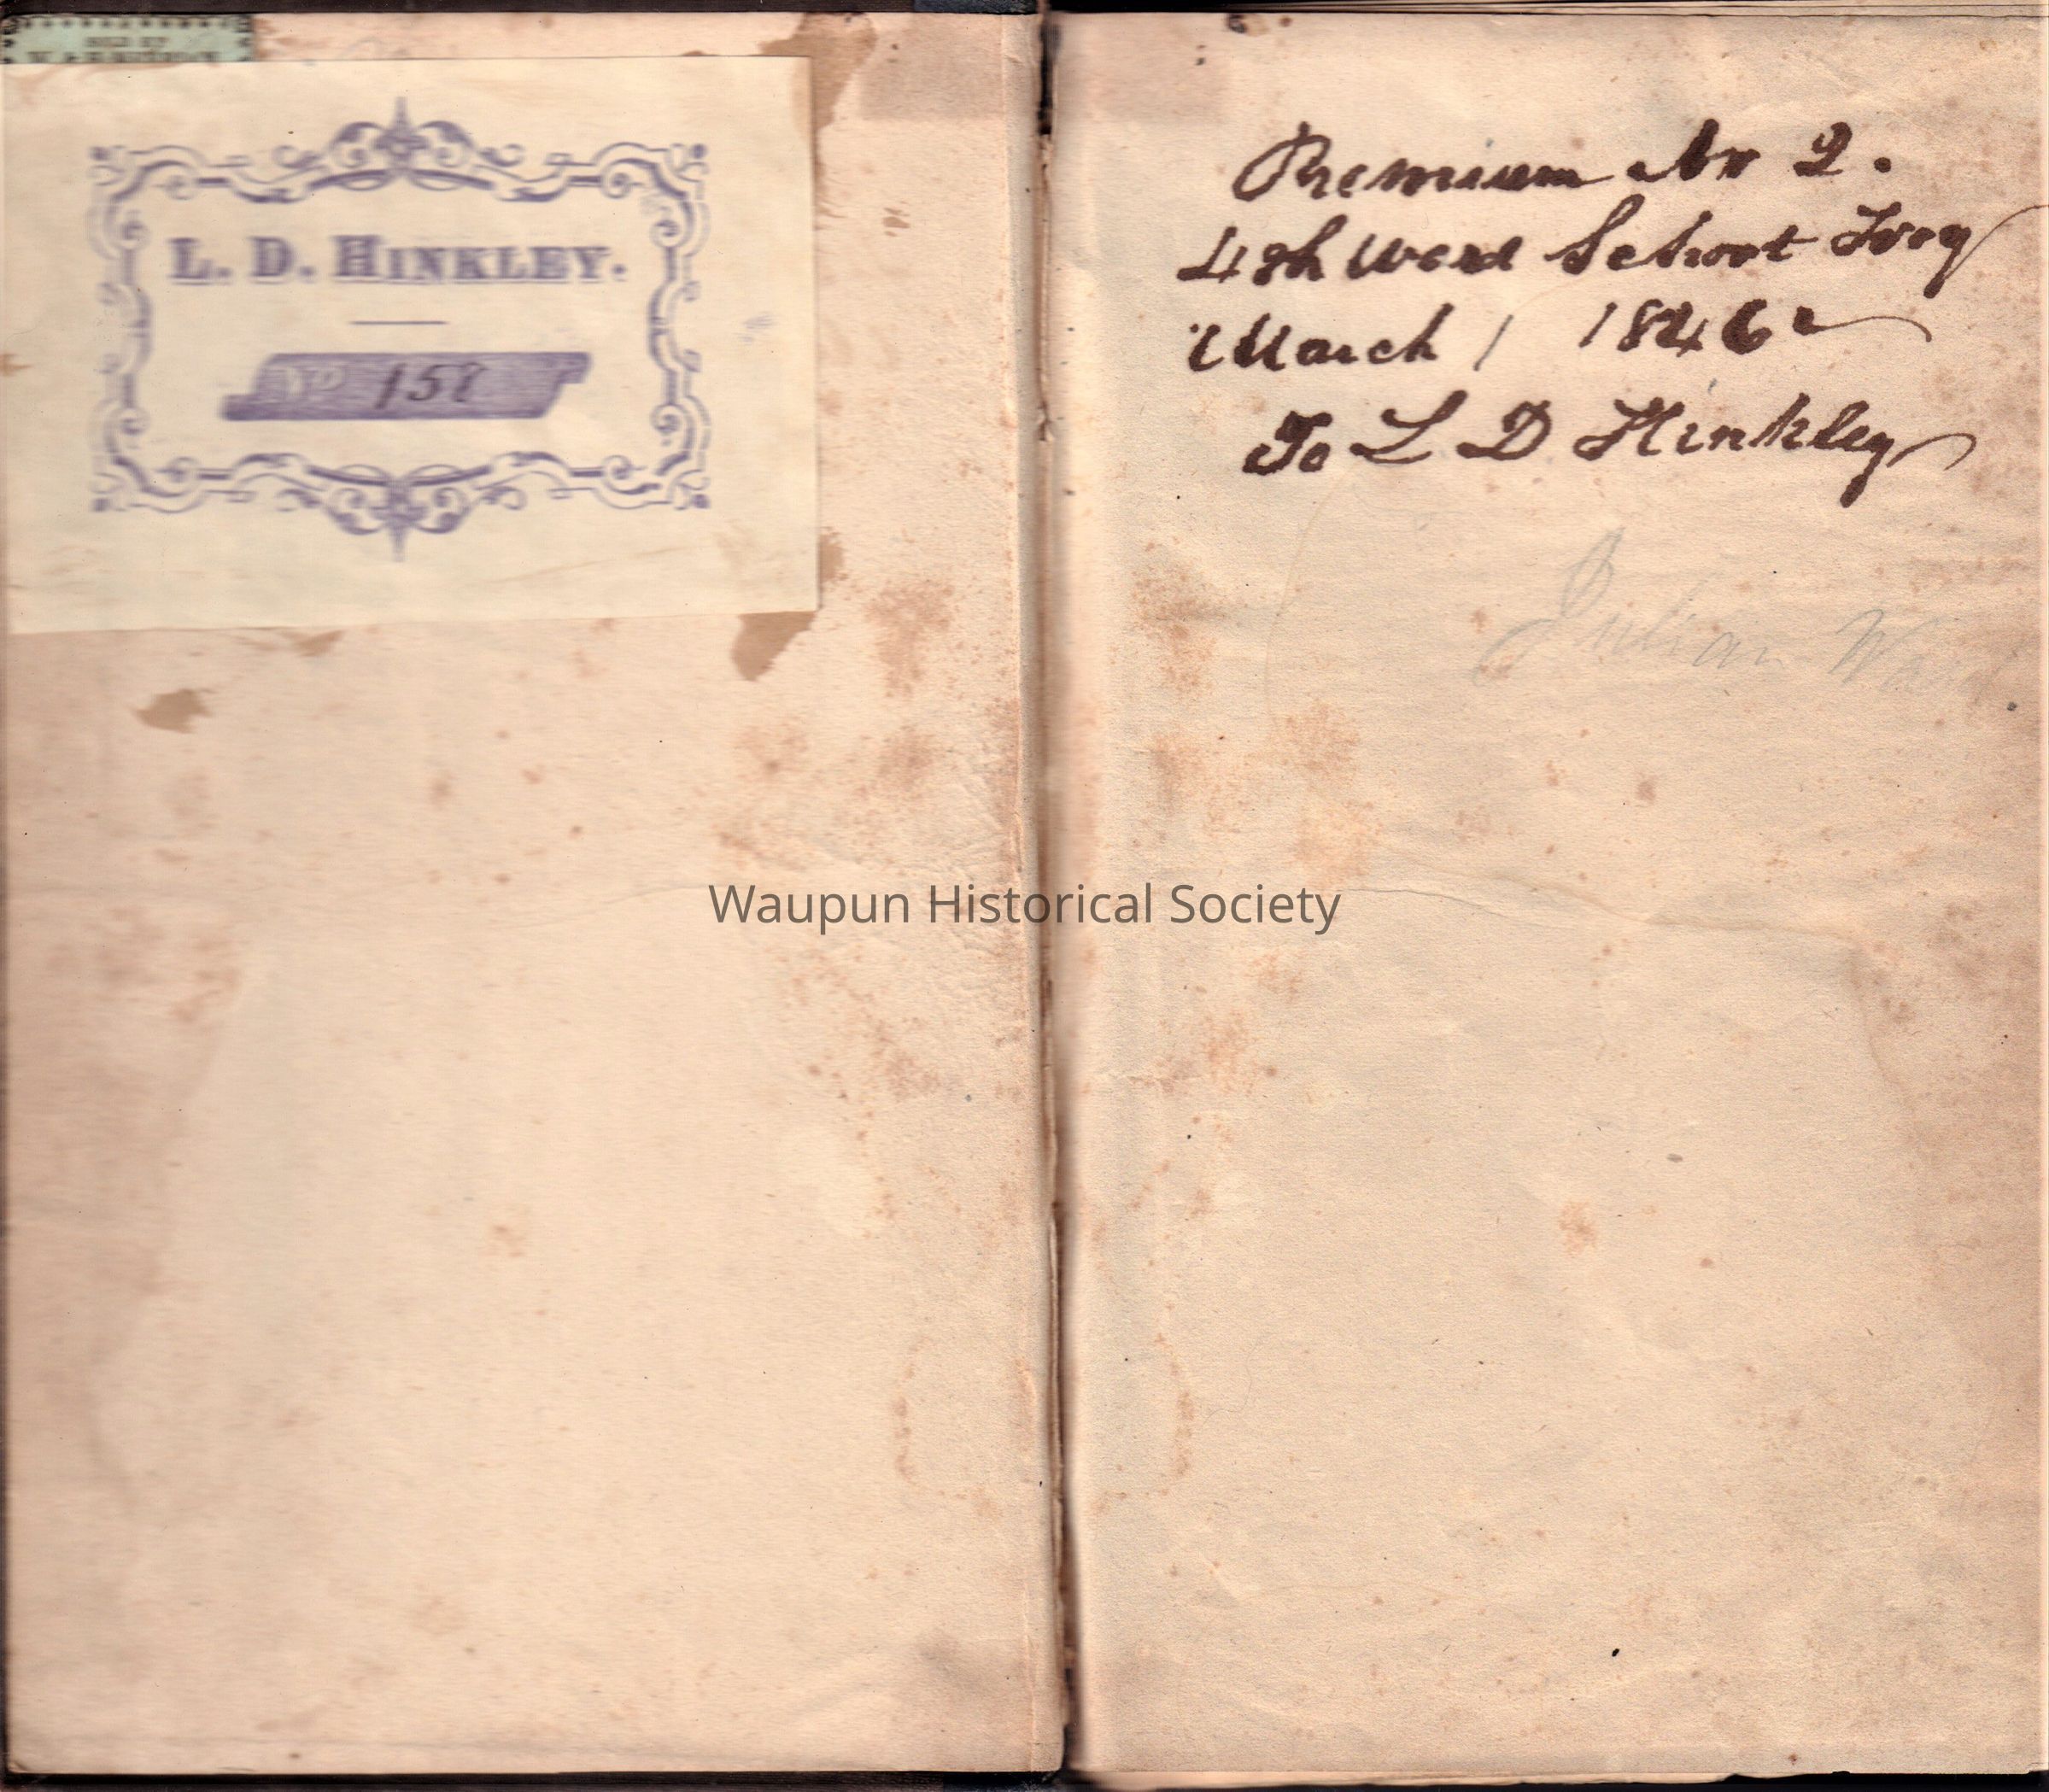 SOLD BY
L. D. HINKLEY.
No 157
Premium No 2.
4th Ward School Troy
March 1 1846
To L D Hinkley
Julian Ward
Waupun Historical Society